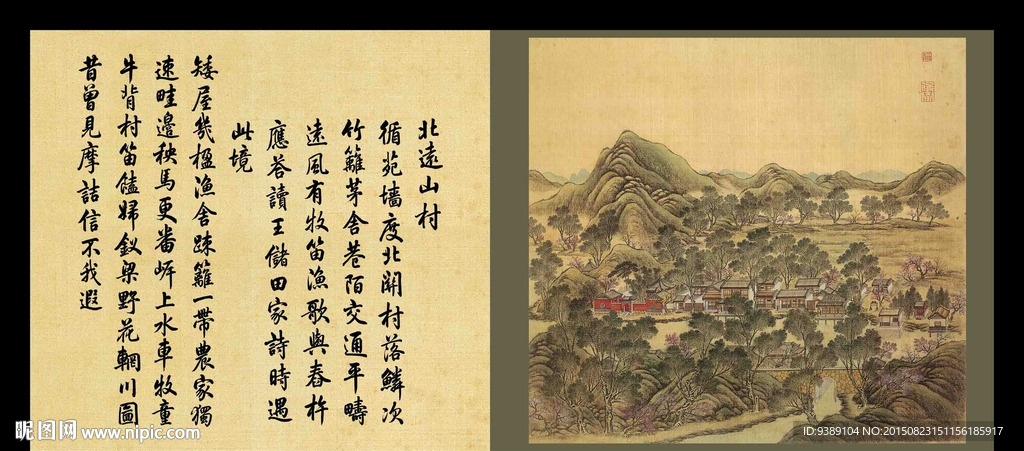 北遠山村
循苑墻度北關村落鱗次
竹籬茅舍巷陌交通平疇
遠風有牧笛漁歌與舂杵
應荅讀王儲田家詩時遇
此境
矮屋幾楹漁舍踈籬一帶農家獨
速畦邊秧馬更番岼上水車牧童
牛背村笛饁婦釵梁野花輞川圖
昔曾見摩詰信不我遐
昵图网 www.nipic.com
ID:9389104 NO:20150823151156185917